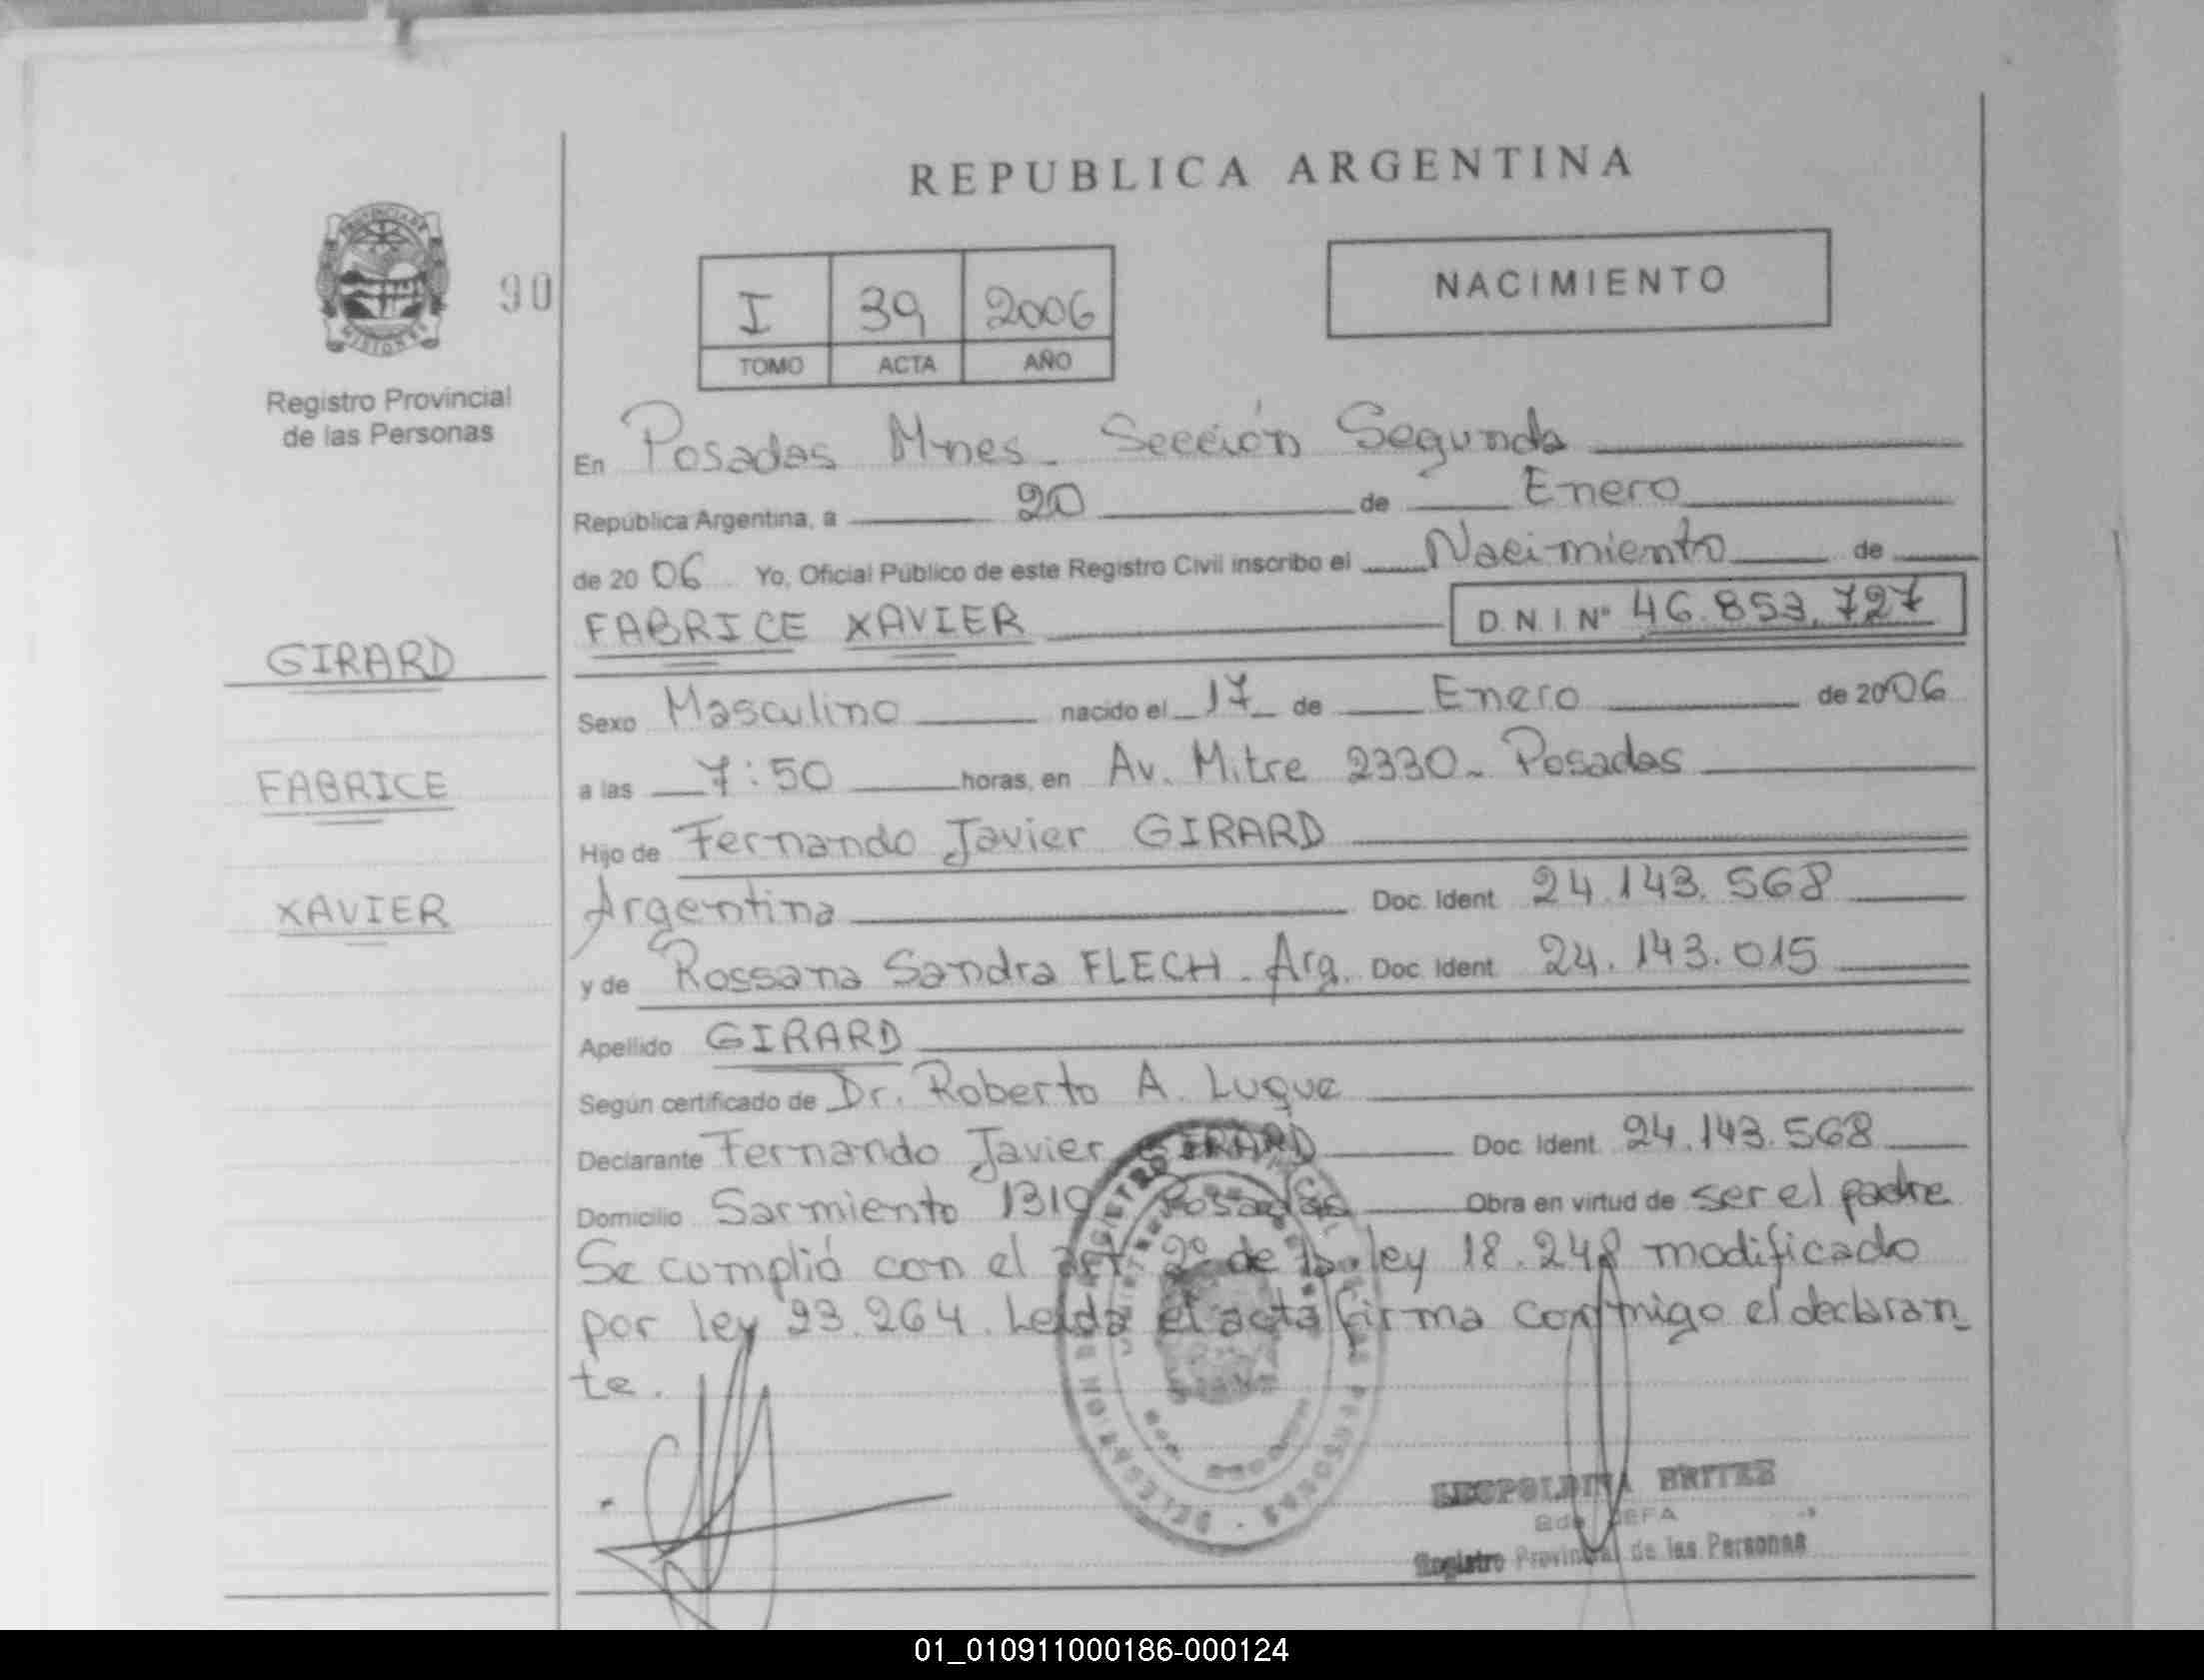 REPUBLICA ARGENTINA
PROVINCIA DE
MISIONES
90
Registro Provincial
de las Personas
I 39 2006
TOMO ACTA AÑO
NACIMIENTO
En Posadas Mnes. Sección Segunda
República Argentina, a 20 de Enero
de 2006 Yo, Oficial Público de este Registro Civil inscribo el Nacimiento de
FABRICE XAVIER D.N.I Nº 46.853.727
GIRARD
FABRICE
XAVIER
Sexo Masculino nacido el 17 de Enero de 2006
a las 7:50 horas, en Av. Mitre 2330 - Posadas
Hijo de Fernando Javier GIRARD
Argentina Doc. Ident. 24.143.568
y de Rossana Sandra FLECH - Arg. Doc. Ident. 24.143.015
Apellido GIRARD
Según certificado de Dr. Roberto A. Luque
Declarante Fernando Javier GIRARD Doc. Ident. 24.143.568
Domicilio Sarmiento 1319 Posadas Obra en virtud de ser el padre
Se cumplió con el art. 2º de la ley 18.248 modificado
por ley 23.264. Leída el acta firma conmigo el declaran_
te.
LEOPOLDINA BRITEZ
JEFA
Registro Provincial de las Personas
01_010911000186-000124